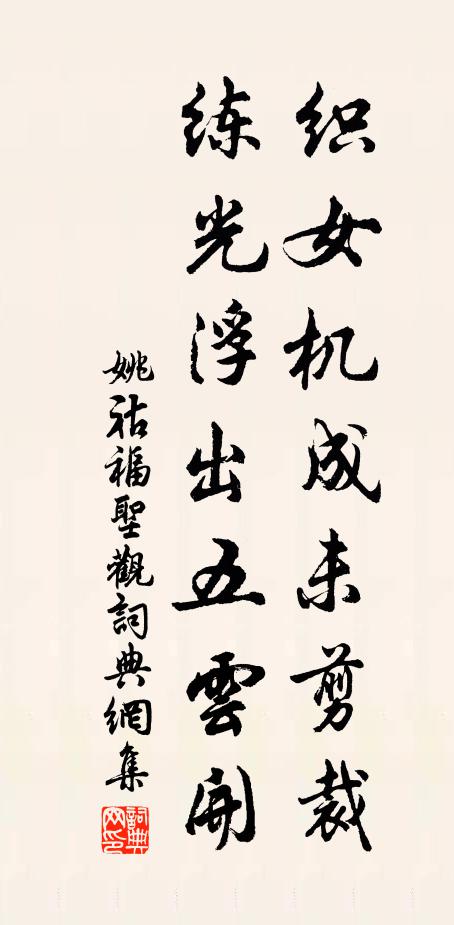 织女机成未剪裁
练光浮出五雲開
姚祜福聖觀詞典網集
詞典网印